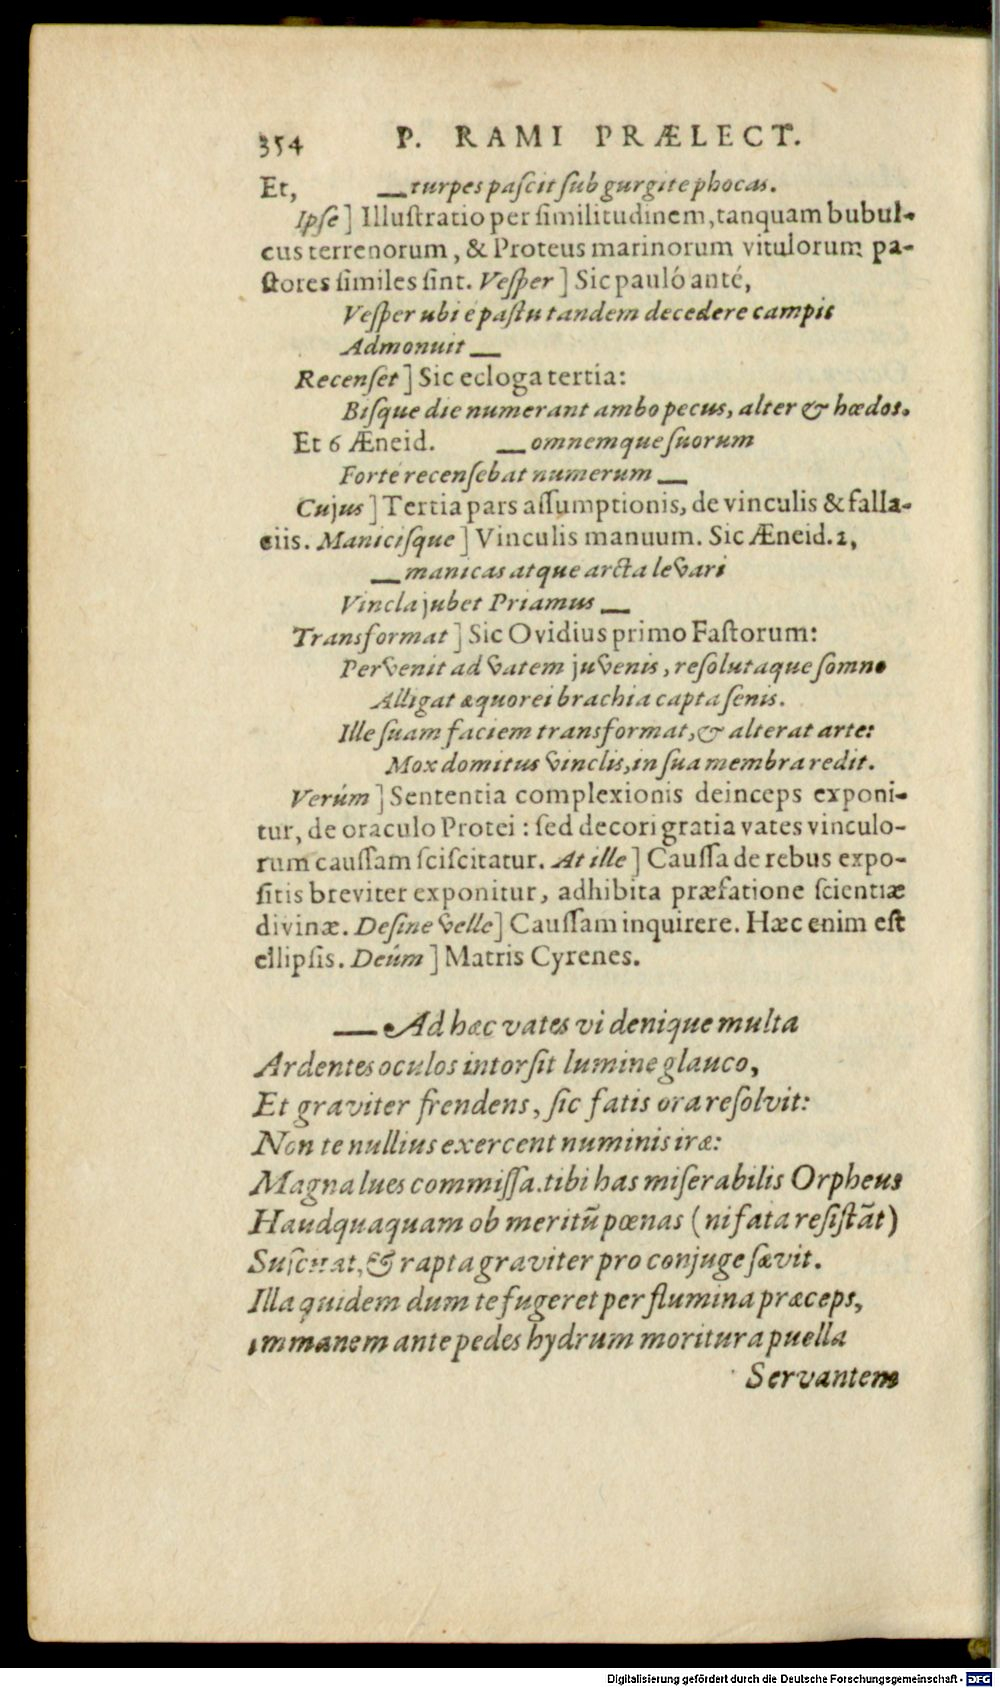 354 P. RAMI PRÆLECT.
Et, __ turpes pascit sub gurgite phocas.
Ipse] Illustratio per similitudinem, tanquam bubul-
cus terrenorum, & Proteus marinorum vitulorum pa-
stores similes sint. Vesper] Sic pauló anté,
Vesper ubi é pastu tandem decedere campis
Admonuit __
Recenset] Sic ecloga tertia:
Bisque die numerant ambo pecus, alter & hœdos.
Et 6 Æneid. __ omnemque suorum
Forté recensebat numerum __
Cujus] Tertia pars assumptionis, de vinculis & falla-
ciis. Manicisque] Vinculis manuum. Sic Æneid. 2,
__ manicas atque arcta levari
Vincla jubet Priamus __
Transformat] Sic Ovidius primo Fastorum:
Pervenit ad vatem juvenis, resolutaque somno
Alligat æquorei brachia capta senis.
Ille suam faciem transformat, & alterat arte:
Mox domitus vinclis, in sua membra redit.
Verúm] Sententia complexionis deinceps exponi-
tur, de oraculo Protei: sed decori gratia vates vinculo-
rum caussam sciscitatur. At ille] Caussa de rebus expo-
sitis breviter exponitur, adhibita præfatione scientiæ
divinæ. Desine velle] Caussam inquirere. Hæc enim est
ellipsis. Deúm] Matris Cyrenes.
__ Ad hæc vates vi denique multa
Ardentes oculos intorsit lumine glauco,
Et graviter frendens, sic fatis ora resolvit:
Non te nullius exercent numinis iræ:
Magna lues commissa. tibi has miserabilis Orpheus
Haudquaquam ob meritũ pœnas (ni fata resistãt)
Suscitat, & rapta graviter pro conjuge sævit.
Illa quidem dum te fugeret per flumina præceps,
immanem ante pedes hydrum moritura puella
Servantem
Digitalisierung gefördert durch die Deutsche Forschungsgemeinschaft - DFG